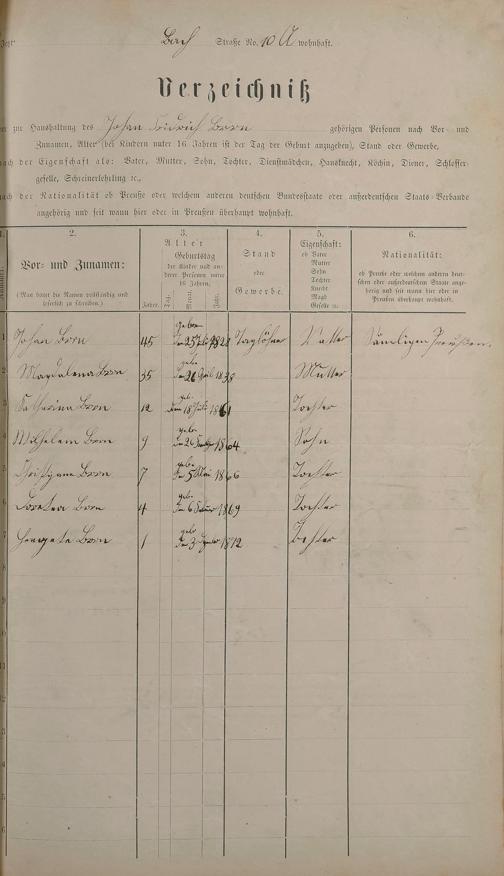 Bach Straße No. 10 A wohnhaft.
Verzeichniß
zur Haushaltung des Johan Fridrich Born gehörigen Personen nach Vor- und
Zunamen, Alter (bei Kindern unter 16 Jahren ist der Tag der Geburt anzugeben), Stand oder Gewerbe,
nach der Eigenschaft als: Vater, Mutter, Sohn, Tochter, Dienstmädchen, Hausknecht, Köchin, Diener, Schlosser-
geselle, Schreinerlehrling ec.,
nach der Nationalität ob Preuße oder welchem anderen deutschen Bundesstaate oder außerdeutschen Staats-Verbande
angehörig und seit wann hier oder in Preußen überhaupt wohnhaft.
1. 2. 3. 4. 5. 6.
Vor- und Zunamen:
(Man bittet die Namen vollständig und leserlich zu schreiben.)
Alter
Jahre.
Geburtstag
der Kinder und anderer Personen unter 16 Jahren.
Tag. Monat. Jahr.
Stand
oder
Gewerbe.
Eigenschaft:
ob Vater
Mutter
Sohn
Tochter
Knecht
Magd
Geselle ec.
Nationalität:
ob Preuße oder welchem andern deutschen oder außerdeutschen Staate angehörig und seit wann hier oder in Preußen überhaupt wohnhaft.
1 Johan Born 45 den 25 Juli 1828 Taglöhner Vatter Sämtligen Preußen.
2 Magdalena Born 35 den 26 April 1838 Mutter
3 Katharina Born 12 den 18 Juli 1861 Tochter
4 Wilhelem Born 9 den 26 1864 Sohn
5 Christgane Born 7 den 5 Mai 1866 Tochter
6 Doretea Born 4 den 6 1869 Tochter
7 Born 1 den 3 1872 Tochter